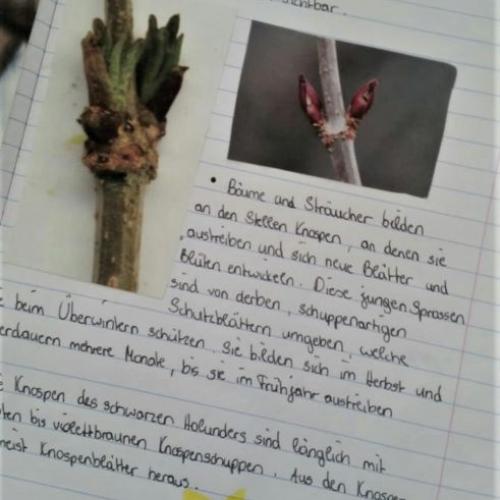 sichtbar.
• Bäume und Sträucher bilden
an den Stellen Knospen, an denen sie
austreiben und sich neue Blätter und
Blüten entwickeln. Diese jungen Sprossen
sind von derben, schuppenartigen
Schutzblättern umgeben, welche
beim Überwintern schützen. Sie bilden sich im Herbst und
erdauern mehrere Monate, bis sie im Frühjahr austreiben
Knospen des schwarzen Holunders sind länglich mit
bis violettbraunen Knospenschuppen. Aus den Knospen
meist Knospenblätter heraus.